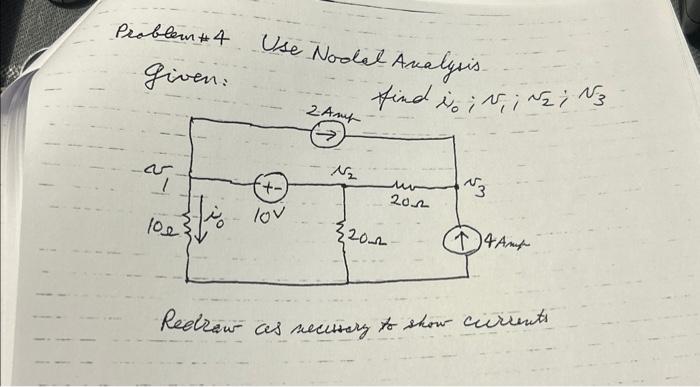 Problem #4 Use Nodal Analysis
Given:
find i₀ ; v₁ ; v₂ ; v₃
2 Amp
v₁
+ -
v₂
v₃
20Ω
10V
i₀
10Ω
20Ω
↑ 4 Amp
Redraw as necessary to show currents